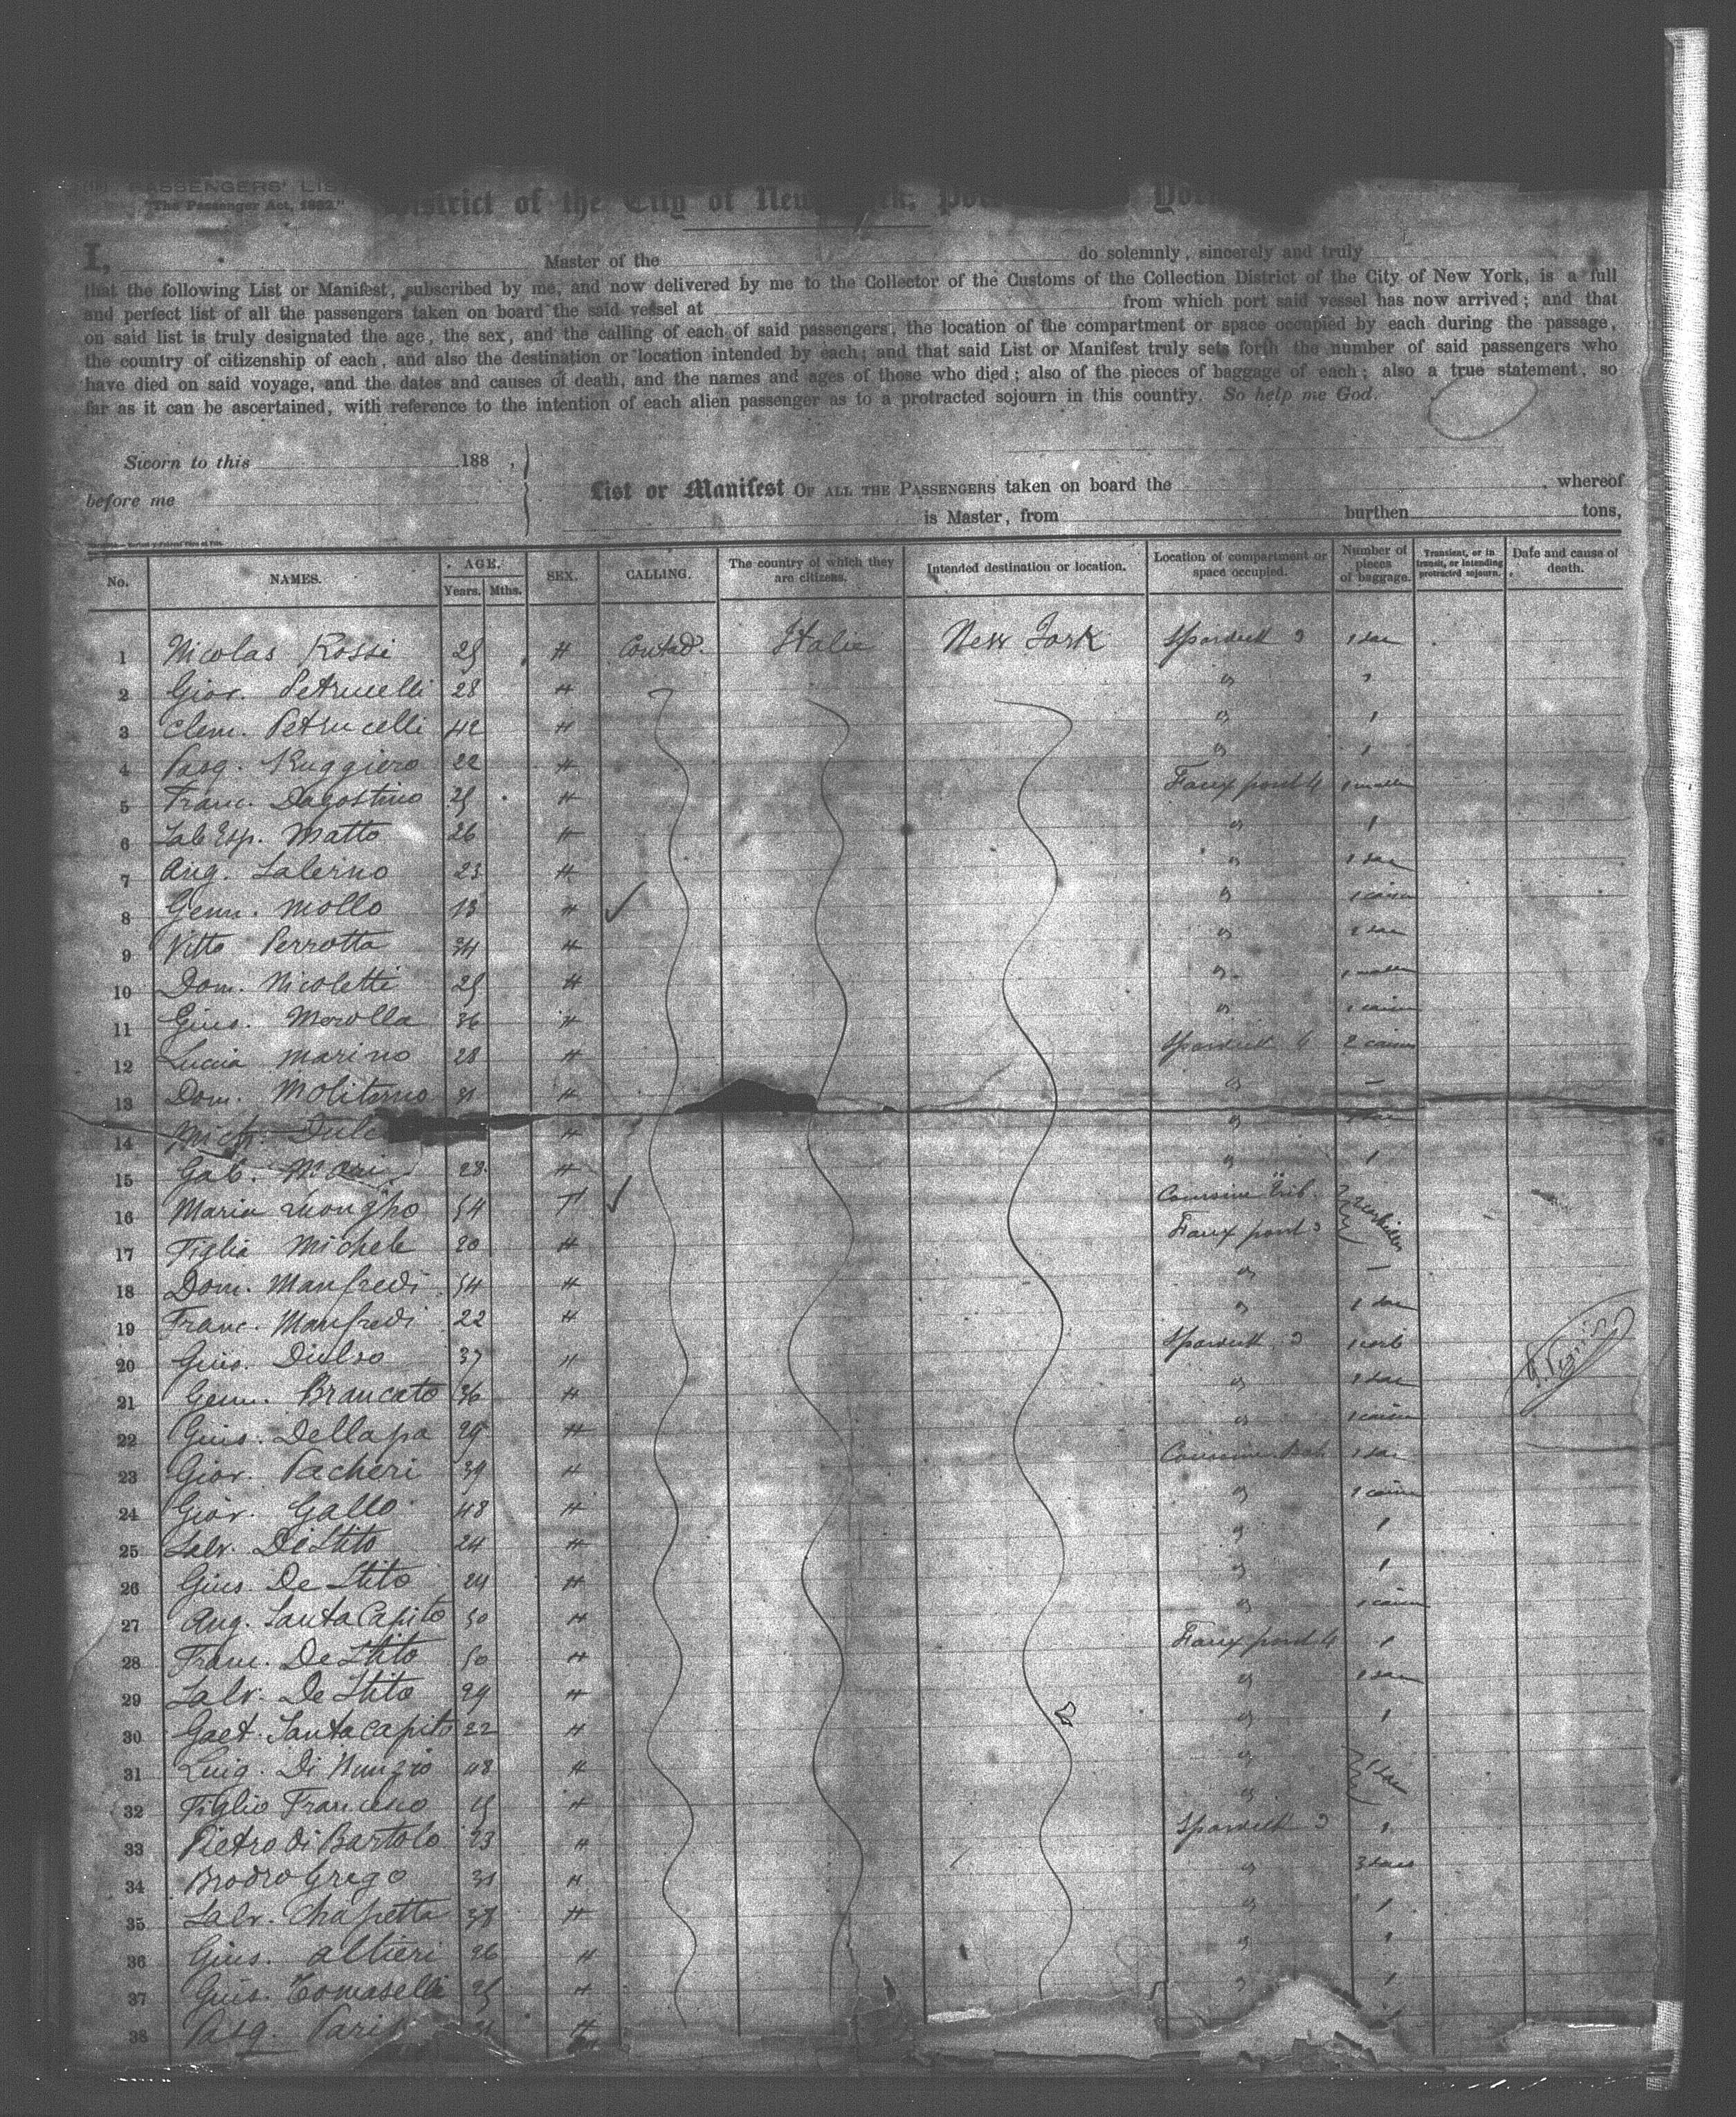 PASSENGERS' LIST
"The Passenger Act, 1882."
District of the City of New York, Port York
I, Master of the do solemnly, sincerely and truly
that the following List or Manifest, subscribed by me, and now delivered by me to the Collector of the Customs of the Collection District of the City of New York, is a full
and perfect list of all the passengers taken on board the said vessel at from which port said vessel has now arrived; and that
on said list is truly designated the age, the sex, and the calling of each of said passengers, the location of the compartment or space occupied by each during the passage,
the country of citizenship of each, and also the destination or location intended by each; and that said List or Manifest truly sets forth the number of said passengers who
have died on said voyage, and the dates and causes of death, and the names and ages of those who died; also of the pieces of baggage of each; also a true statement, so
far as it can be ascertained, with reference to the intention of each alien passenger as to a protracted sojourn in this country. So help me God.
Sworn to this 188 ,
before me
List or Manifest OF ALL THE PASSENGERS taken on board the , whereof
is Master, from burthen tons,
No. NAMES. AGE. Years. Mths. SEX. CALLING. The country of which they are citizens. Intended destination or location. Location of compartment or space occupied. Number of pieces of baggage. Transient, or in transit, or intending protracted sojourn. Date and cause of death.
1 Nicolas Rossi 25 H Contad. Italie New York Spardeck 3 1 sac
2 Giov. Petrucelli 28 H " "
3 Clem. Petrucelli 42 H " 1
4 Pasq. Ruggiero 22 H " 1
5 Franc. Dagostino 25 H Faux pont 4 1 malle
6 Matto 26 H " 1
7 Ang. Salerno 23 H " 1 sac
8 Genn. Mollo 13 H " 1 caisse
9 Vitto Perrotta 34 H " 2 sac
10 Dom. Nicoletti 25 H " 1 malle
11 Gius. Merolla 36 H " 1 caisse
12 Lucia Marino 28 H Spardeck 4 2 caisse
13 Dom. Moliterno 31 H " —
14 Mich. Dulc H " 1 sac
15 Gab. Mari 23 H " 1
16 Maria Longho 54 F
17 Figlia Michele 20 H Faux pont 3
18 Dom. Manfredi 54 H " —
19 Franc. Manfredi 22 H " 1 sac
20 Gius. 37 H Spardeck 3
21 Genn. Brancato 36 H " 1 sac
22 Gius. Dellapa 29 H " 1 caisse
23 Giov. Pacheri 39 H 1 sac
24 Giov. Gallo 48 H " 1 caisse
25 Salv. De Stito 24 H " 1
26 Gius. De Stito 24 H " 1
27 Ang. Santa Capito 50 H " 1 caisse
28 Franc. De Stito 50 H Faux pont 4 1
29 Salv. De Stito 29 H " 1 sac
30 Gaet. Santa Capito 22 H " 1
31 Luig. Di Nunzio 48 H " 1 sac
32 Figlio Francesco 15 H "
33 Pietro di Bartolo 23 H Spardeck 3 1
34 Grego 31 H " 3 sacs
35 Salv. Chapetta 38 H " 1
36 Gius. Altieri 26 H " 1
37 Gius. Tomaselli 25 H " 1
38 Pasq. Paris H